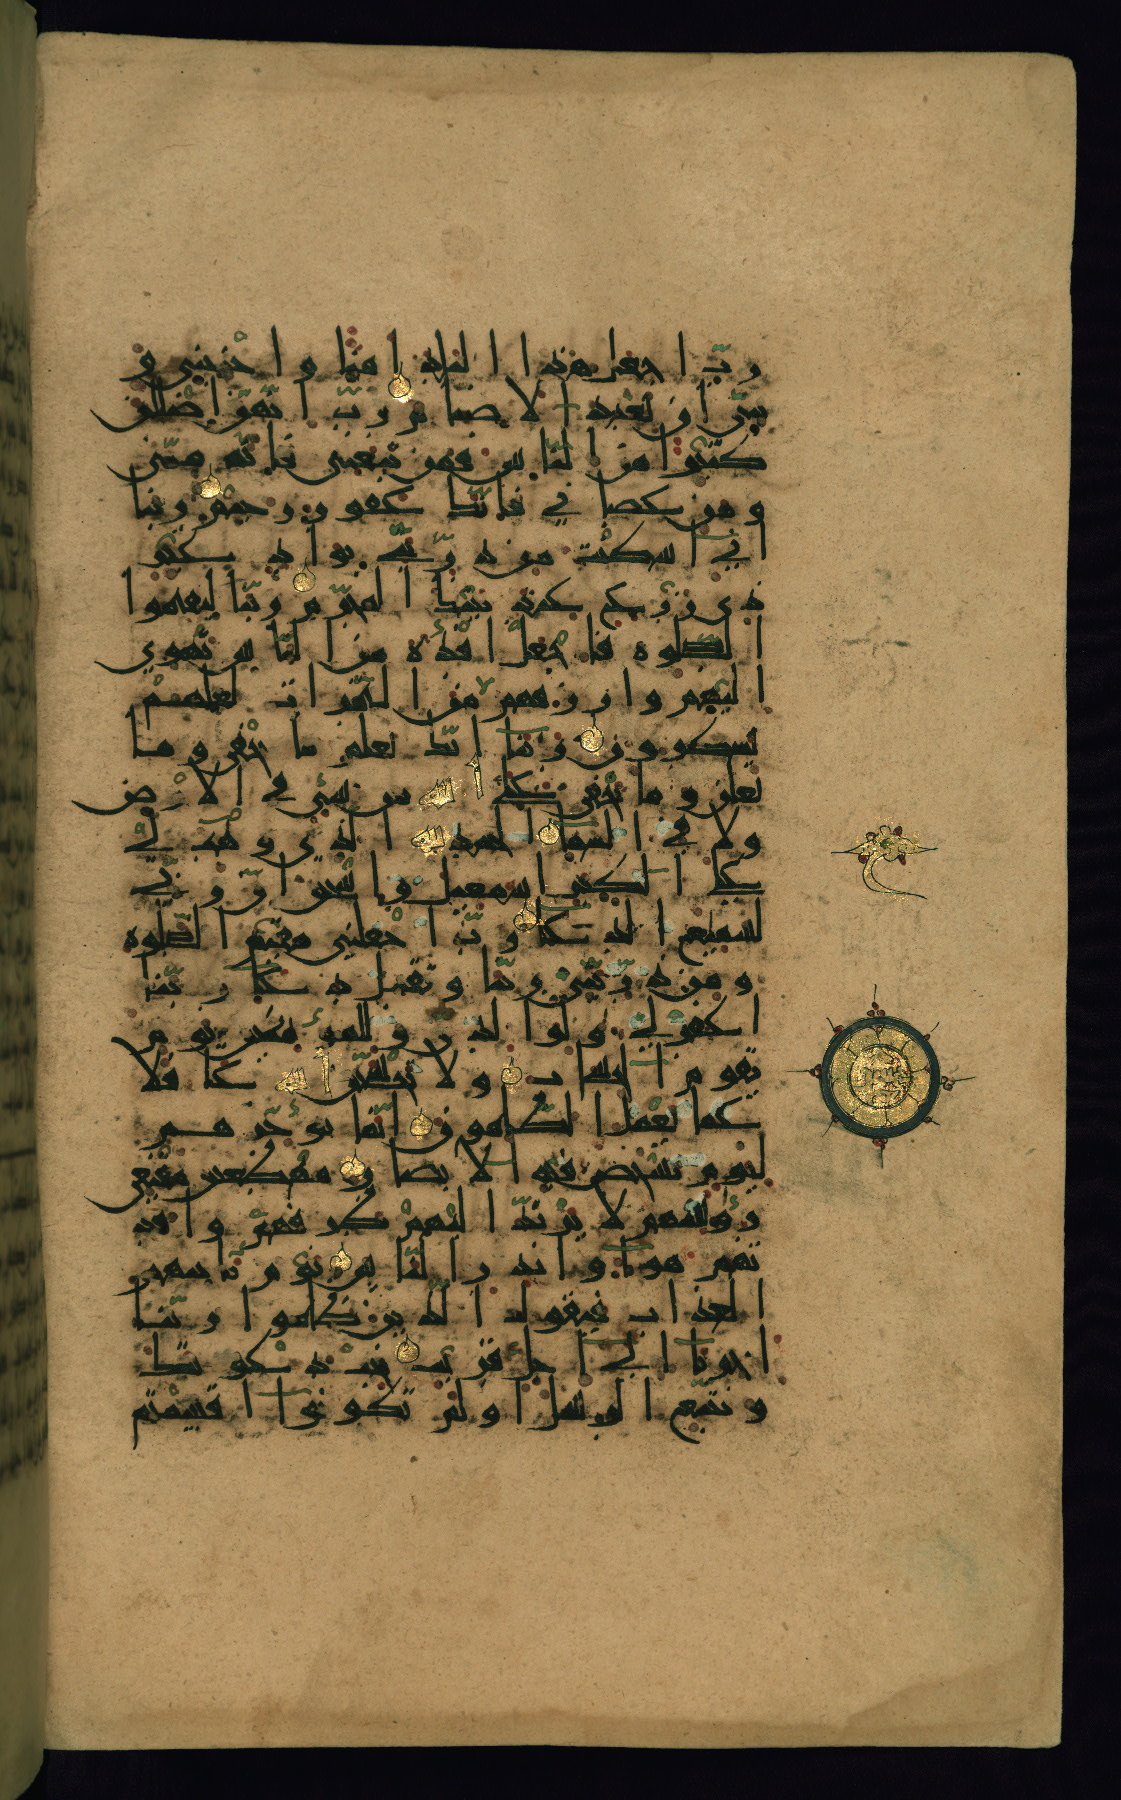 رب اجعل هذا البلد امنا واجنبني و
بني ان نعبد الاصنام رب انهن اضللن
كثيرا من الناس فمن تبعني فانه مني
ومن عصاني فانك غفور رحيم ربنا
اني اسكنت من ذريتي بواد غير
ذي زرع عند بيتك المحرم ربنا ليقيموا
الصلوة فاجعل افئدة من الناس تهوي
اليهم وارزقهم من الثمرات لعلهم
يشكرون ربنا انك تعلم ما نخفي وما
نعلن وما يخفى على الله من شيء في الارض
ولا في السماء الحمد لله الذي وهب لي
على الكبر اسمعيل واسحق ان ربي
لسميع الدعاء رب اجعلني مقيم الصلوة
ومن ذريتي ربنا وتقبل دعاء ربنا
اغفر لي ولوالدي وللمؤمنين يوم
يقوم الحساب ولا تحسبن الله غافلا
عما يعمل الظلمون انما يؤخرهم
ليوم تشخص فيه الابصار مهطعين مقنعي
رؤسهم لا يرتد اليهم طرفهم وافئد
تهم هواء وانذر الناس يوم ياتيهم
العذاب فيقول الذين ظلموا ربنا
اخرنا الى اجل قريب نجب دعوتك
ونتبع الرسل اولم تكونوا اقسمتم